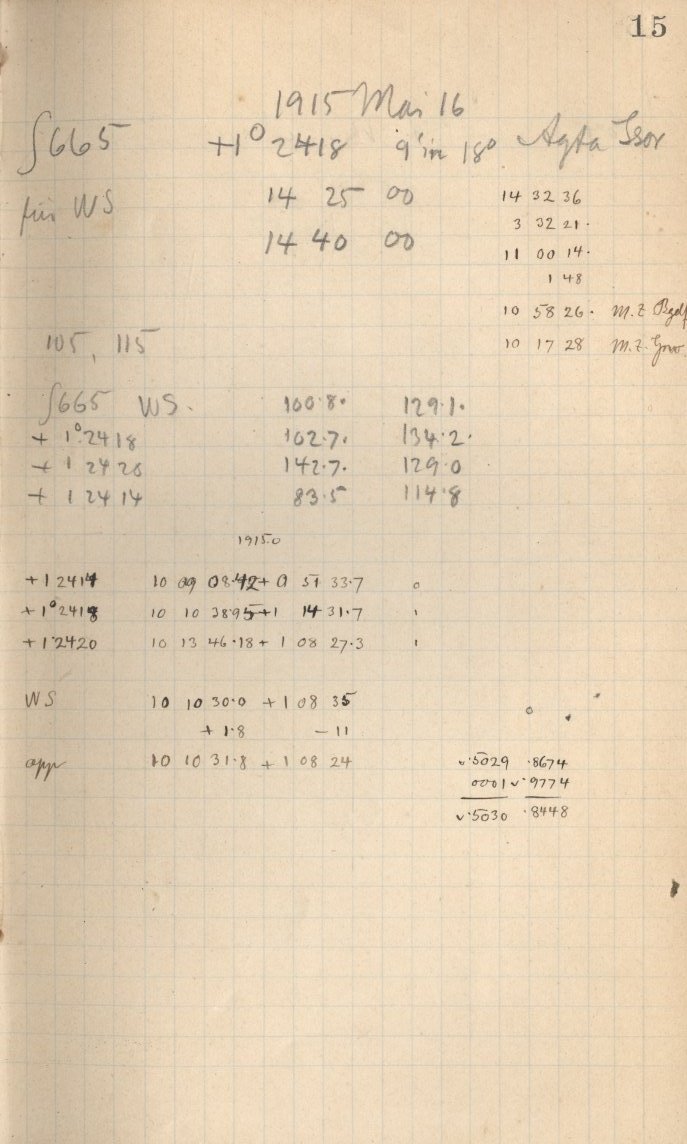 15
1915 Mai 16
∫665 +1° 2418 9 in 18° Agfa Isor
für WS 14 25 00 14 32 36
14 40 00 3 32 21.
11 00 14.
1 48
10 58 26. M.Z. Bgdf
105, 115 10 17 28 M.Z. Grw.
∫665 WS. 100.8. 129.1.
+ 1° 2418 102.7. 134.2.
+ 1 2420 142.7. 129.0
+ 1 2414 83.5 114.8
1915.0
+1 2414 10 09 08.42 + 0 51 33.7 0
+1° 2418 10 10 38.95 +1 14 31.7 1
+1 2420 10 13 46.18 + 1 08 27.3 1
WS 10 10 30.0 + 1 08 35
+ 1.8 - 11
app 10 10 31.8 + 1 08 24 v.5029 .8674
0001 v.9774
v.5030 .8448